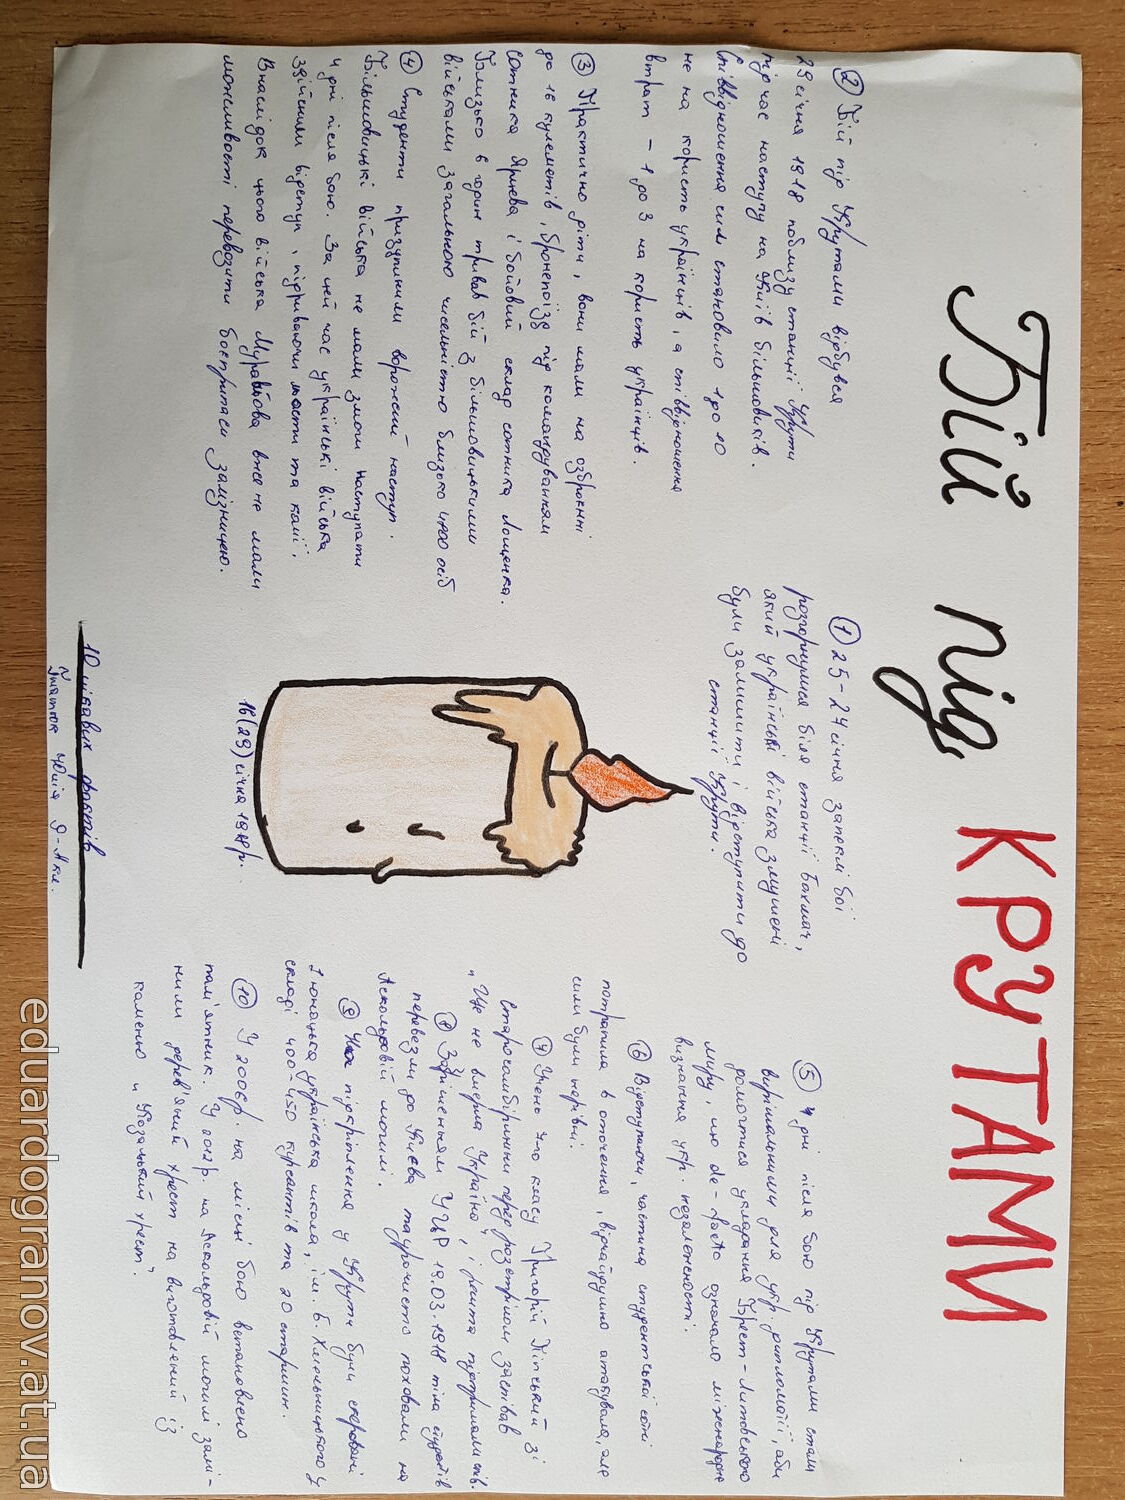 Бій під КРУТАМИ
① 25-27 січня запеклі бої
розгорнулися біля станції Бахмач,
який українські війська змушені
були залишити і відступити до
станції Крути.
② Бій під Крутами відбувся
29 січня 1918 поблизу станції Крути
під час наступу на Київ більшовиків.
Співвідношення сил становило 1 до 10
не на користь українців, а співвідношення
втрат - 1 до 3 на користь українців.
③ Практично діти, вони мали на озброєнні
до 16 кулеметів, бронепоїзд під командуванням
сотника Ярцева і бойовий склад сотника Лощенка.
Близько 6 годин тривав бій з більшовицькими
військами загальною чисельністю близько 4800 осіб
④ Студенти призупинили ворожий наступ.
Більшовицькі війська не мали змоги наступати
4 дні після бою. За цей час українські війська
здійснили відступ, підриваючи мости та колії,
Внаслідок цього війська Муравйова вже не мали
можливості перевозити боєприпаси залізницею.
⑤ 4 дні після бою під Крутами стали
вирішальними для укр. дипломатії, аби
домогтися укладання Брест-Литовського
миру, що de-facto означало міжнародне
визнання укр. незалежності.
⑥ Відступаючи, частина студентської сотні
потрапила в оточення, відчайдушно атакувала, але
сили були нерівні.
⑦ Учень 7-го класу Григорій Піпський зі
Старосамбірщини перед розстрілом заспівав
„Ще не вмерла Україна", і решта підтримали спів.
⑧ За рішенням УЦР 19.03.1918 тіла студентів
перевезли до Києва та урочисто поховали на
Аскольдовій могилі.
⑨ підкріплення у Крути були скеровані
1 юнацька українська школа, ім. Б. Хмельницького у
складі 400-450 курсантів та 20 старшин.
⑩ У 2006р. на місці бою встановлено
пам'ятник. У 2012р. на Аскольдовій могилі замі-
нили дерев'яний хрест на виготовлений із
каменю „Козацький хрест".
16(29) січня 1918р.
10 цікавих фактів
Юлія 9-А кл.
eduardogranov.at.ua